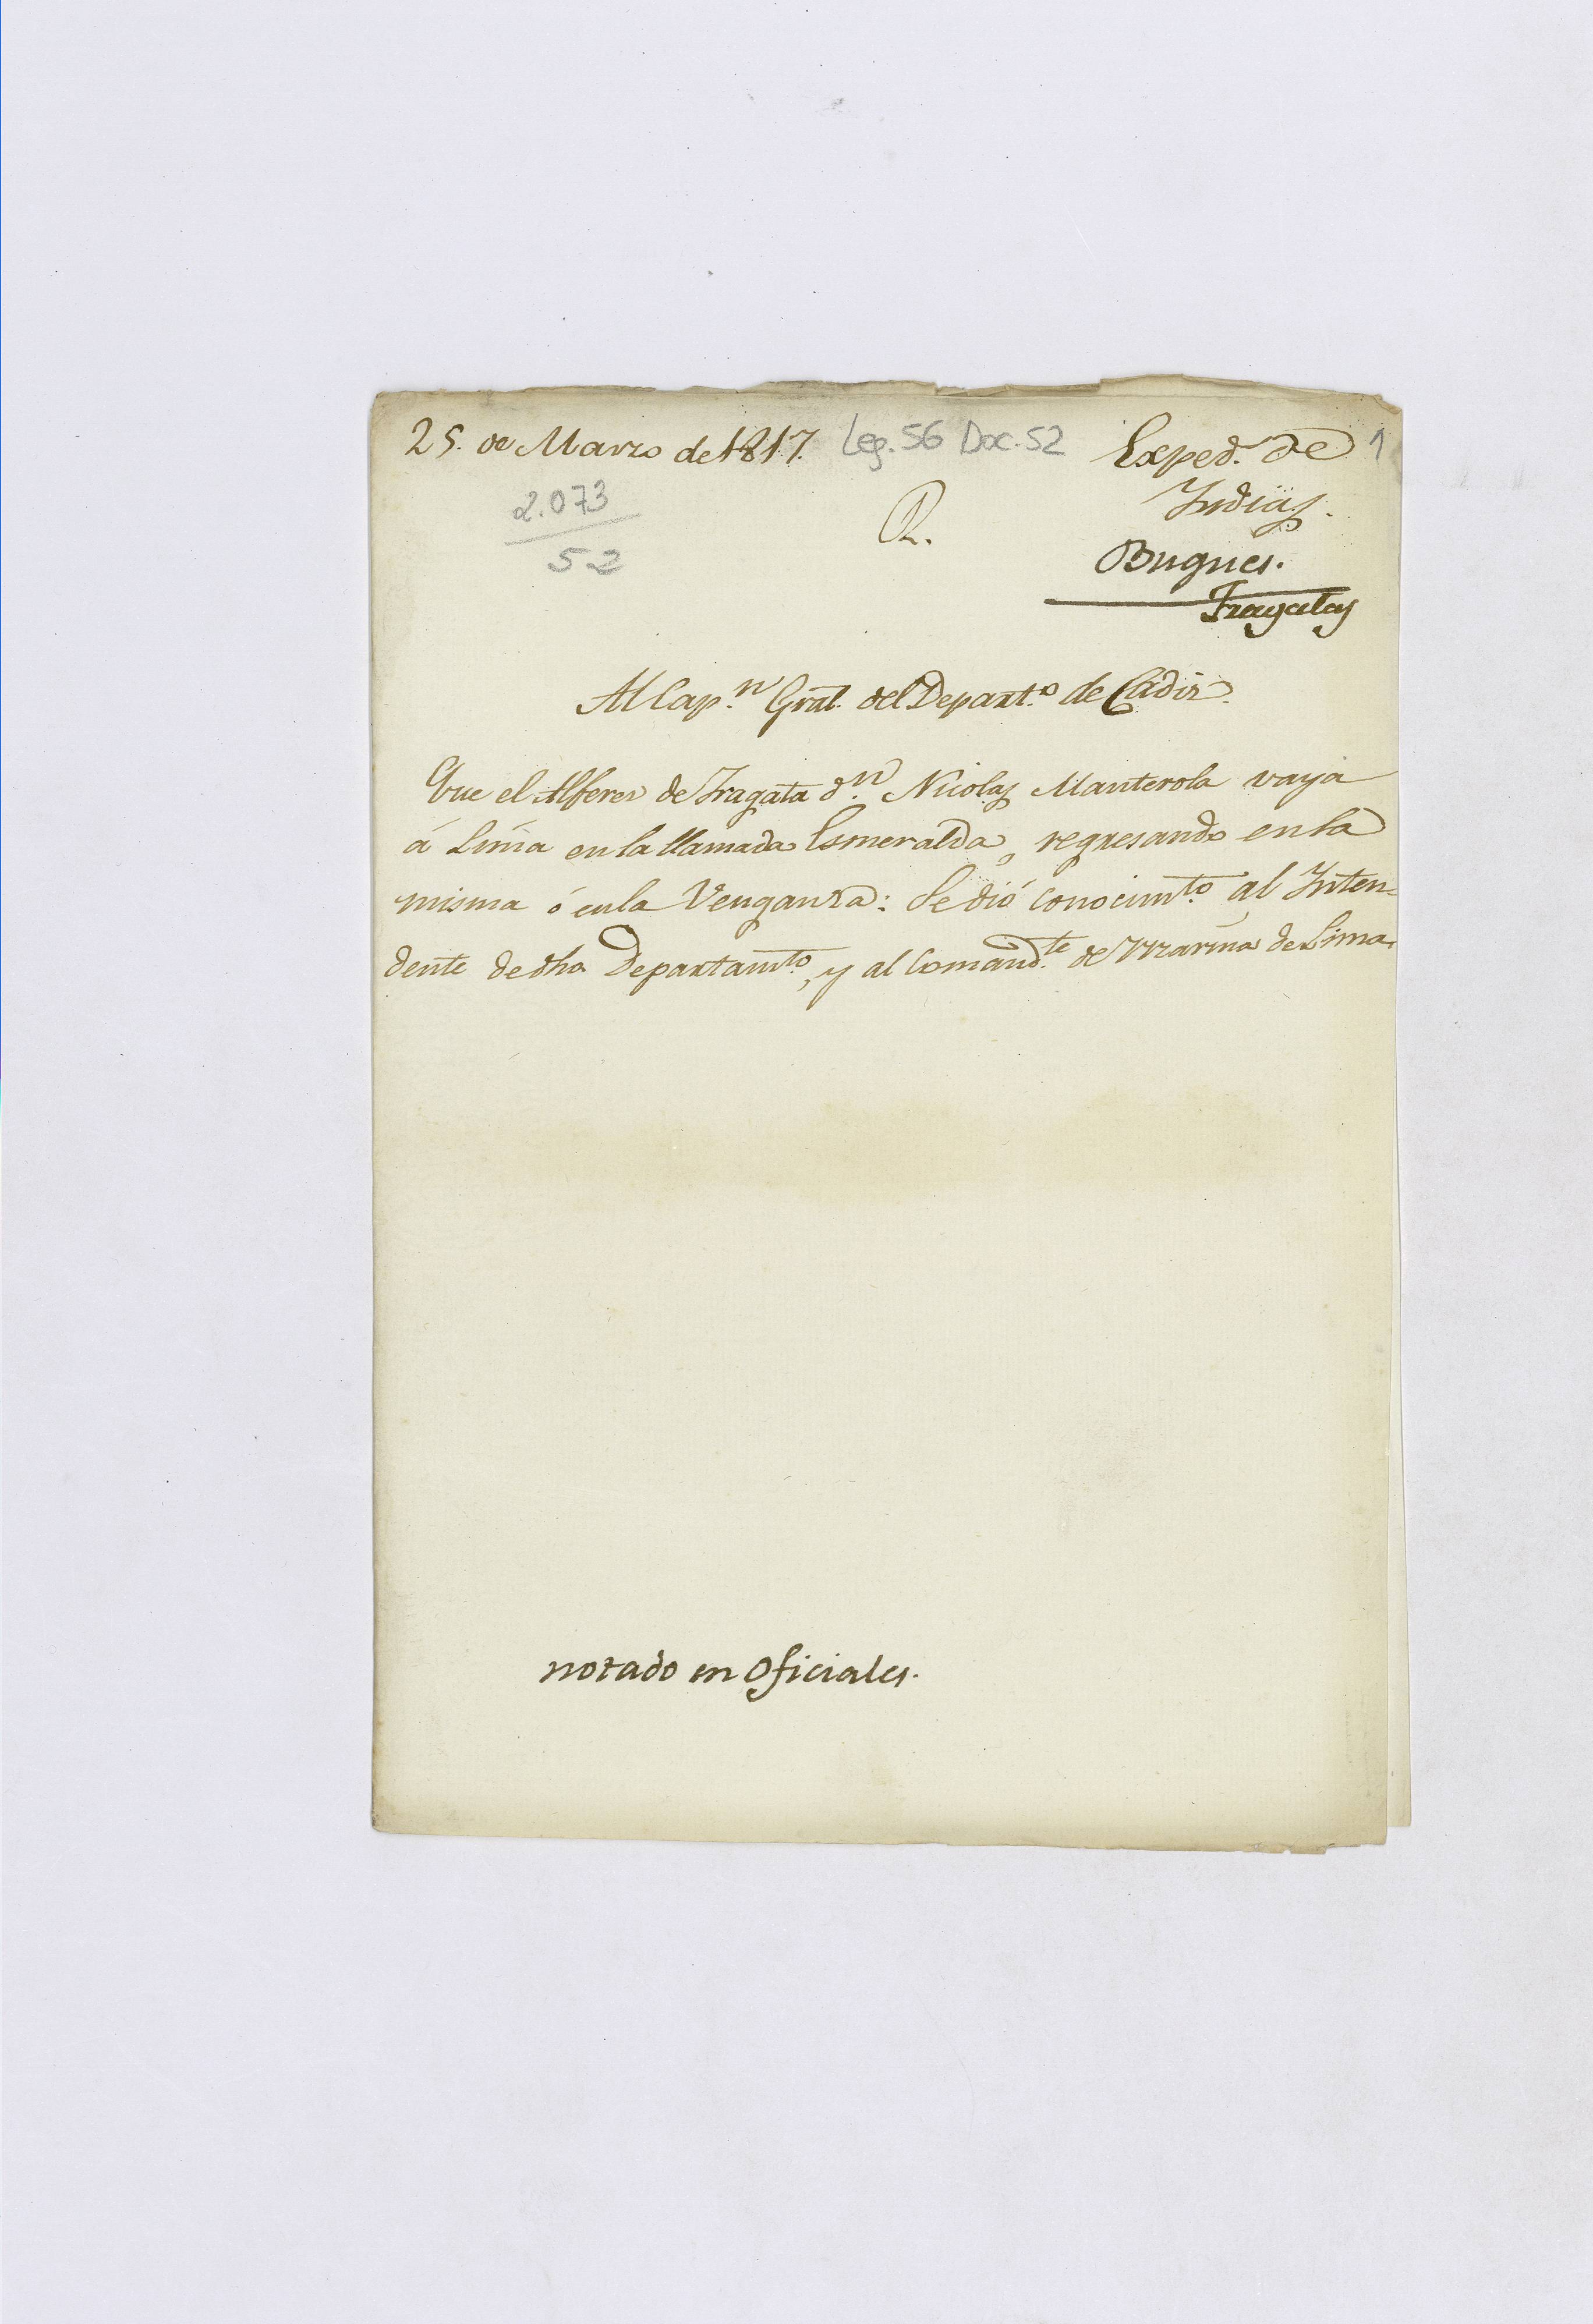 25. de Marzo de 1817. Leg. 56 Doc. 52 Exped.ᵗᵉ de 1
2.073
52
R.
Indias.
Buques.
Fragatas
Al Cap.ⁿ Gral. del Depart.º de Cadiz.
Que el Alferez de Fragata d.ⁿ Nicolas Manterola vaya
á Lima en la llamada Esmeralda, regresando en la
misma ó en la Venganza: Se dió conocimᵗº al Inten-
dente de dho Departamᵗº, y al Comand.ᵗᵉ de Marina de Lima.
notado en Oficiales.